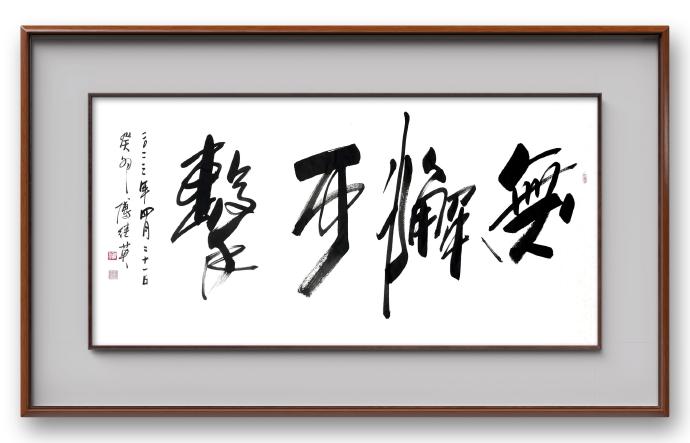 無懈可擊
二〇二三年四月二十一日
癸卯 傅继英